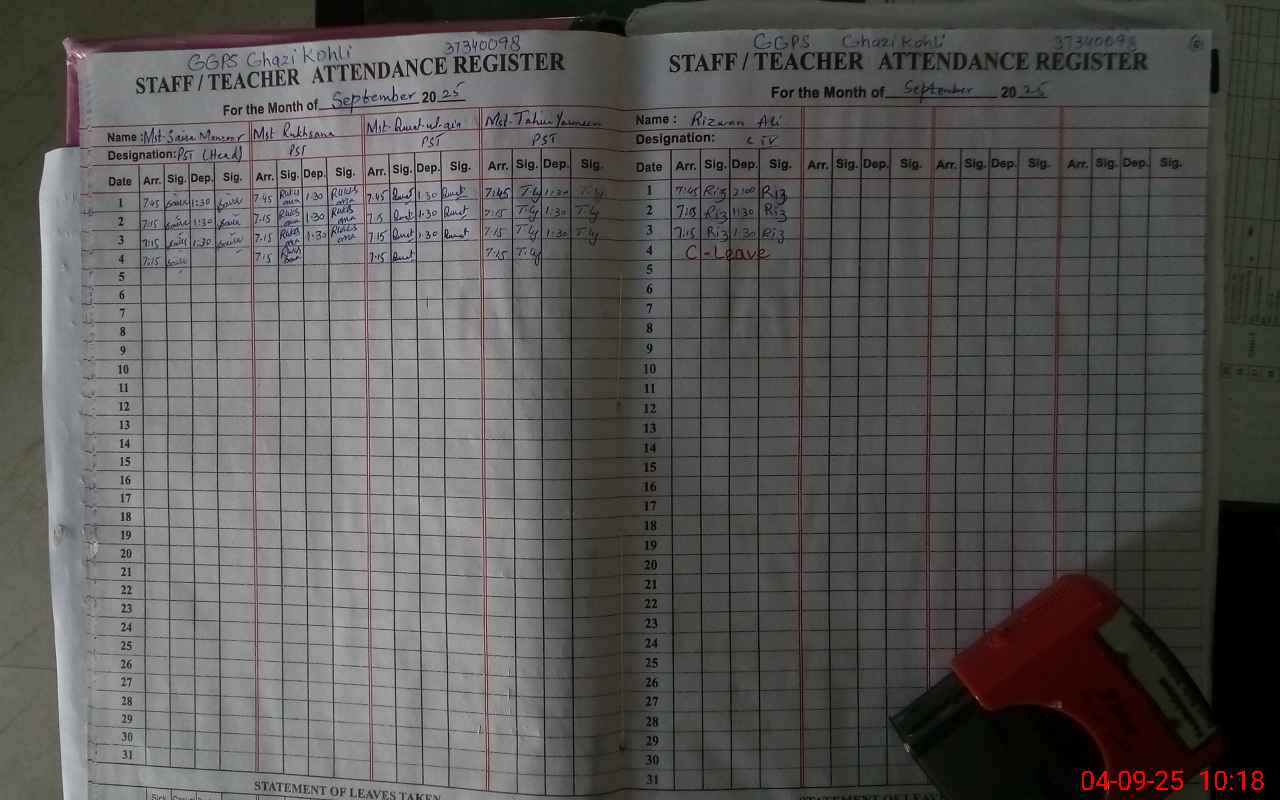 GGPS Ghazi Kohli 37340098
STAFF / TEACHER ATTENDANCE REGISTER
For the Month of September 2025
Name : Mst. Mst Rukhsana Mst. Mst. Tahir
Designation: PST (Head) PST PST PST
Date Arr. Sig. Dep. Sig. Arr. Sig. Dep. Sig. Arr. Sig. Dep. Sig. Arr. Sig. Dep. Sig.
1 7:45 1:30 7:45 1:30 7:45 1:30 7:45 T-ly 1:30 T-ly
2 7:15 1:30 7:15 1:30 7:15 1:30 7:15 T-ly 1:30 T-ly
3 7:15 1:30 7:15 1:30 7:15 1:30 7:15 T-ly 1:30 T-ly
4 7:15 7:15 7:15 7:15 T-ly
5
6
7
8
9
10
11
12
13
14
15
16
17
18
19
20
21
22
23
24
25
26
27
28
29
30
31
STATEMENT OF LEAVES TAKEN
GGPS Ghazi Kohli 37340098
STAFF / TEACHER ATTENDANCE REGISTER
For the Month of September 2025
Name : Rizwan Ali
Designation: C IV
Date Arr. Sig. Dep. Sig. Arr. Sig. Dep. Sig. Arr. Sig. Dep. Sig. Arr. Sig. Dep. Sig.
1 7:45 Riz 2:00 Riz
2 7:15 Riz 1:30 Riz
3 7:15 Riz 1:30 Riz
4 C-Leave
5
6
7
8
9
10
11
12
13
14
15
16
17
18
19
20
21
22
23
24
25
26
27
28
29
30
31
04-09-25 10:18